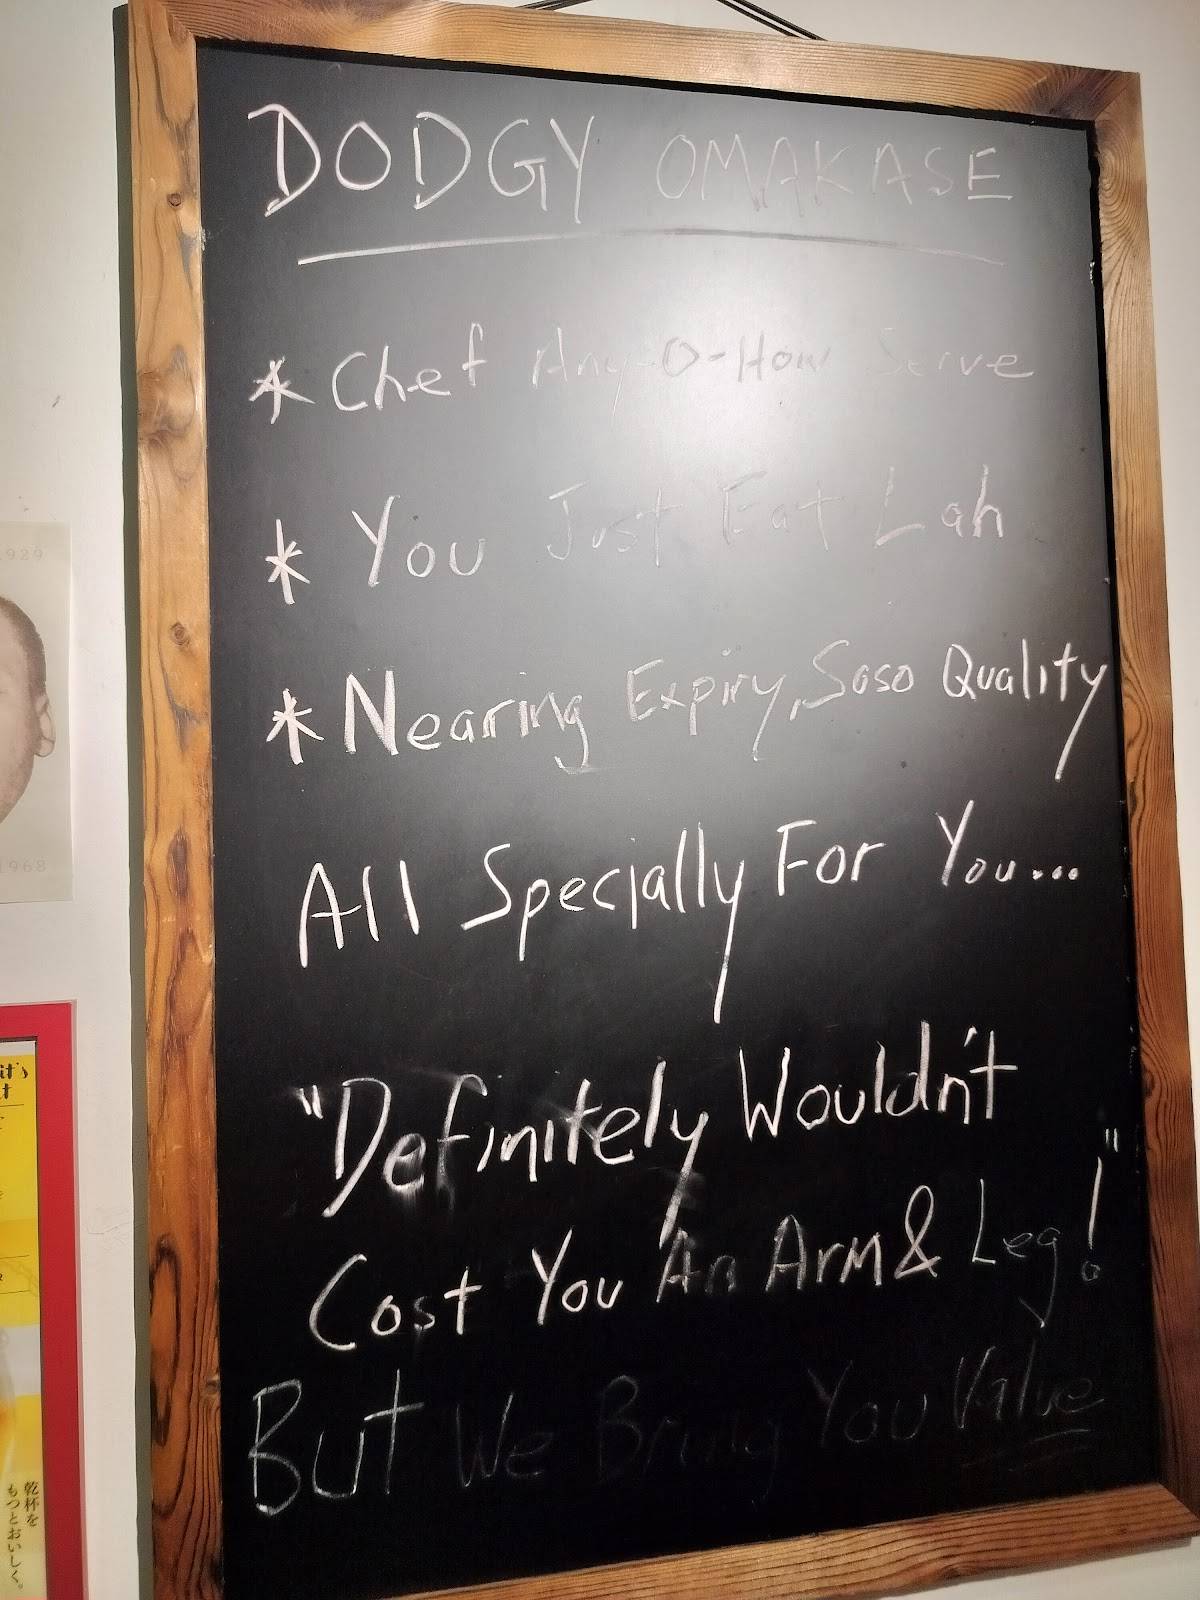 DODGY OMAKASE
* Chef Any-O-How Serve
* You Just Eat Lah
* Nearing Expiry, Soso Quality
All Specially For You...
"Definitely Wouldn't
Cost You An Arm & Leg!"
But We Bring You Value
1929
1968
it's
t
乾杯を
もっとおいしく。